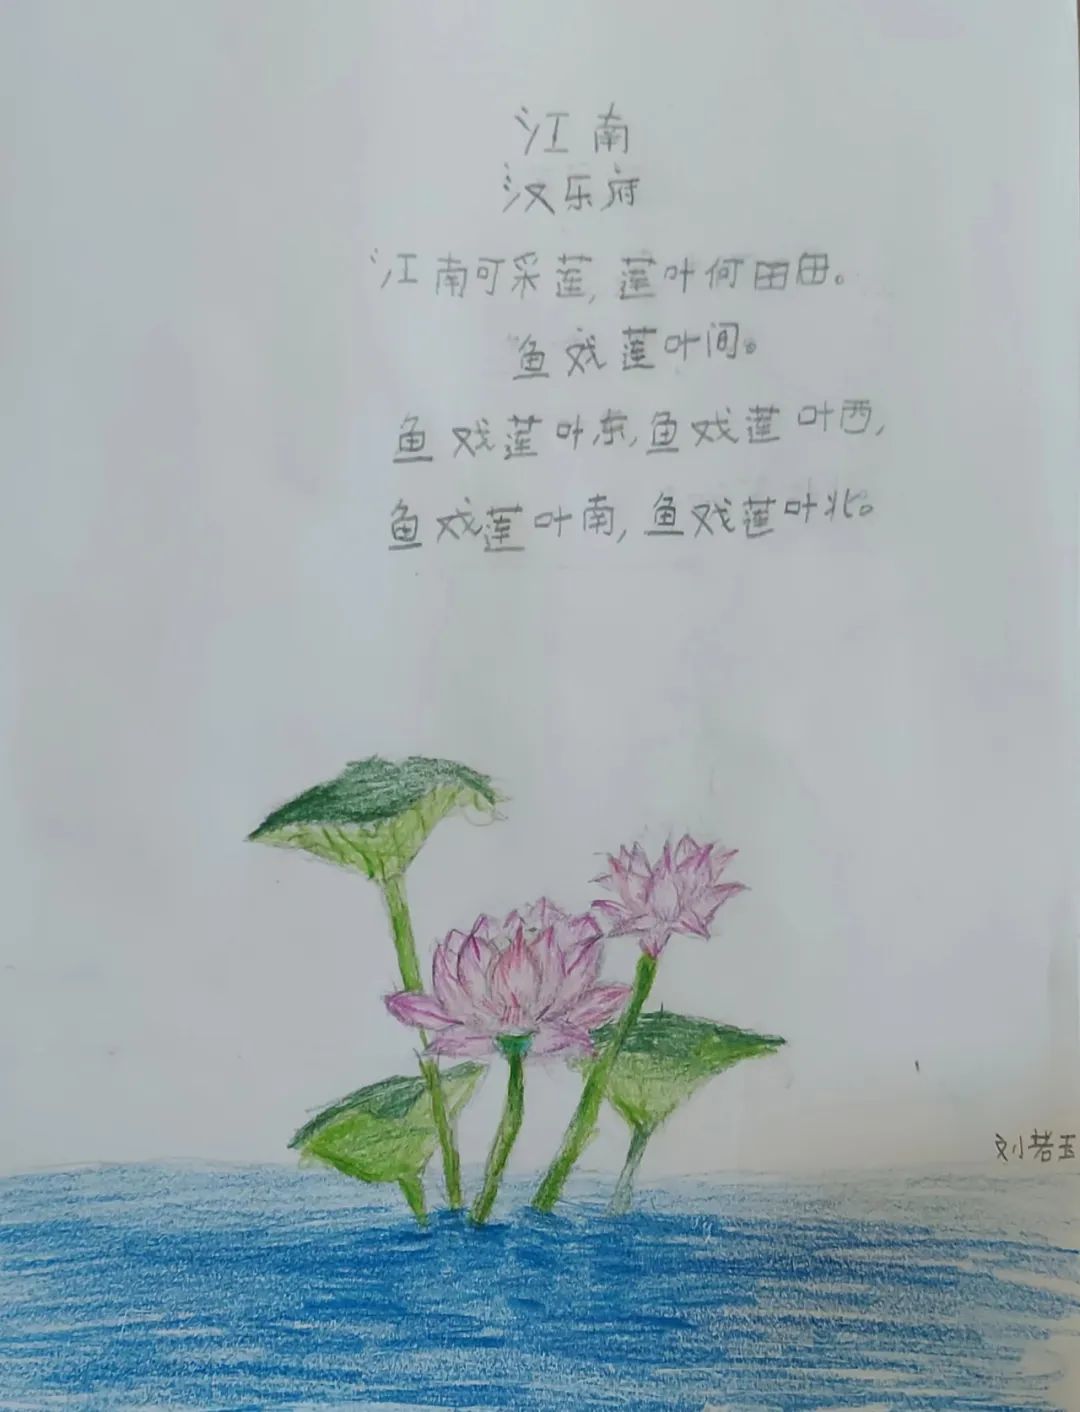 江南
汉乐府
江南可采莲,莲叶何田田。
鱼戏莲叶间。
鱼戏莲叶东,鱼戏莲叶西,
鱼戏莲叶南,鱼戏莲叶北。
刘若玉